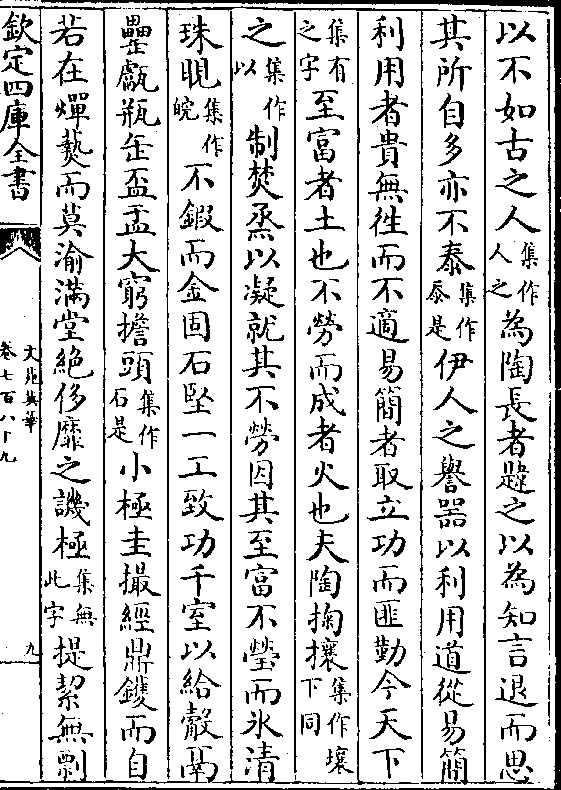 以不如古之人集作人之為陶長者韙之以為知言退而思
其所自多亦不泰集作忝是伊人之譽器以利用道從易簡
利用者貴無徃而不適易簡者取立功而匪勤今天下
集有之字至富者土也不勞而成者火也夫陶掬攘集作壤下同
之集作以制焚烝以凝就其不勞因其至富不瑩而氷清
珠晛集作皖不鍛而金固石堅一工致功千室以給㲄鬲
罍甗瓶缶盃盂大窮擔頭集作石是小極圭撮經鼎鑊而自
若在燀爇而莫渝滿堂絶侈靡之譏極集無此字提絜無剽
欽定四庫全書
文苑英華
卷七百八十九
九